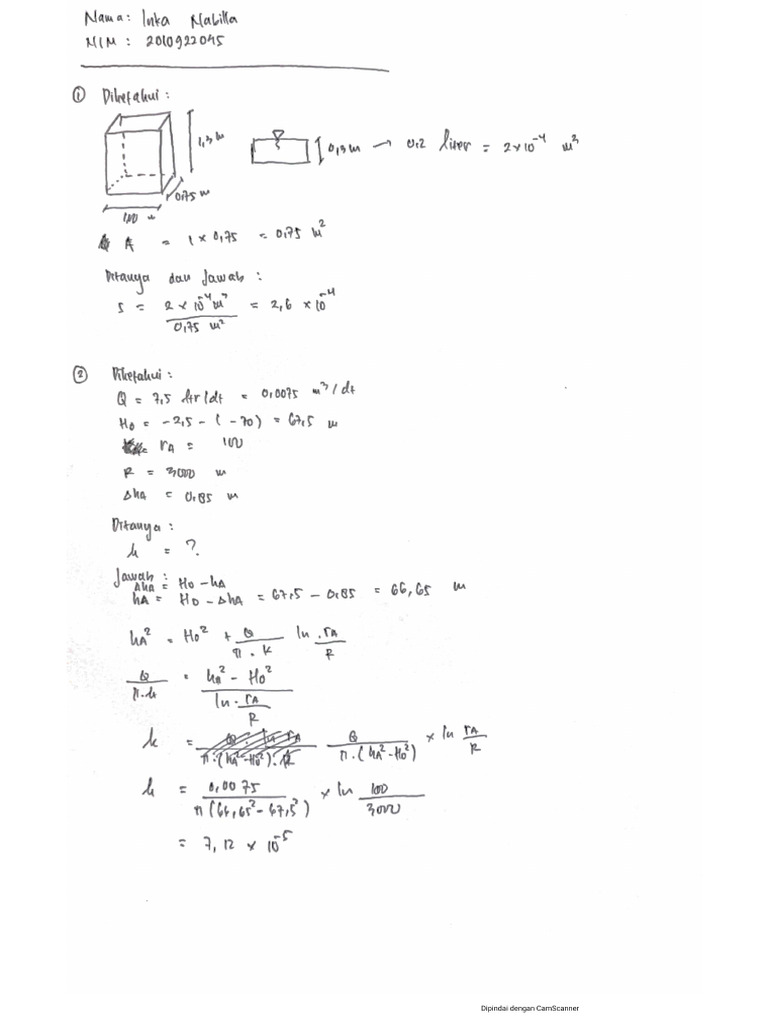 Nama: Inka Nabilla
NIM: 2010922045
① Diketahui:
1,3 m
0,3 m → 0,2 liter = 2 × 10⁻⁴ m³
0,75 m
1,00 m
A = 1 × 0,75 = 0,75 m²
Ditanya dan Jawab:
S = 2 × 10⁻⁴ m³ / 0,75 m² = 2,6 × 10⁻⁴
② Diketahui:
Q = 7,5 ltr/dt = 0,0075 m³/dt
H0 = -2,5 - (-70) = 67,5 m
rA = 100
R = 3000 m
ΔhA = 0,85 m
Ditanya:
k = ?
Jawab:
ΔhA = H0 - hA
hA = H0 - ΔhA = 67,5 - 0,85 = 66,65 m
hA² = H0² + Q / π . k ln . rA / R
Q / π . k = hA² - H0² / ln . rA / R
k = Q / π . (hA² - H0²) × ln rA / R
k = 0,0075 / π (66,65² - 67,5²) × ln 100 / 3000
= 7,12 × 10⁻⁵
Dipindai dengan CamScanner